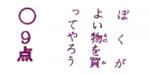 ぼくが
よい物を買
ってやろう
〇9点